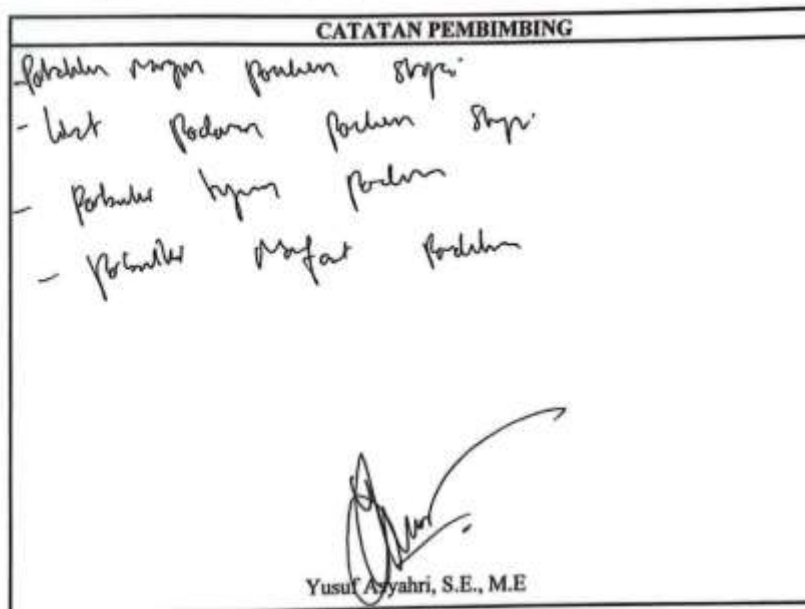 CATATAN PEMBIMBING
- Perbaiki margin penulisan skripsi
- Lihat pedoman penulisan skripsi
- Perbaiki tujuan penelitian
- Perbaiki manfaat penelitian
Yusuf Asyahri, S.E., M.E